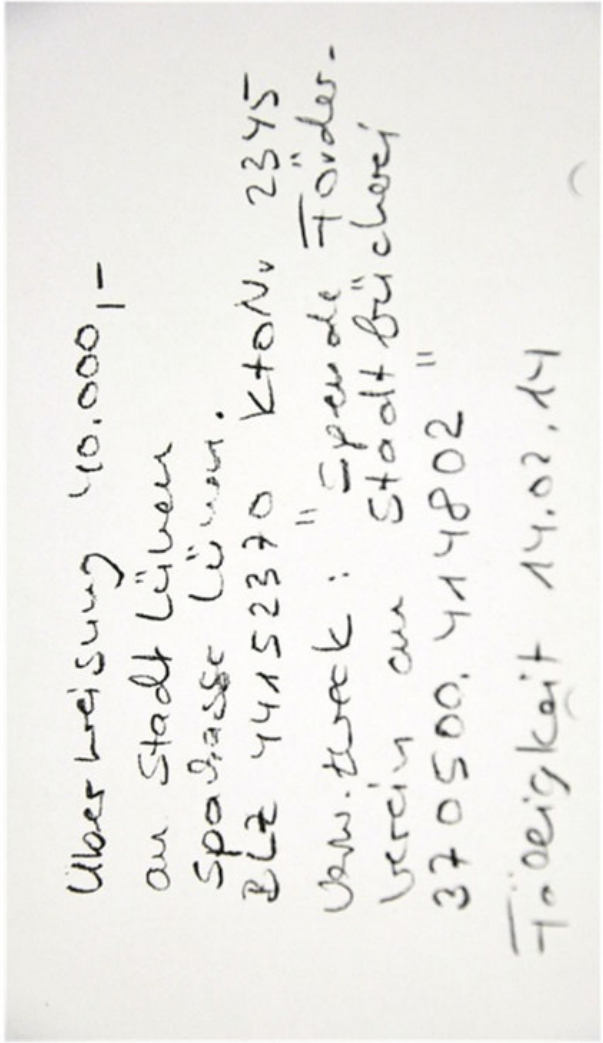 Überweisung 40.000,-
an Stadt Lünen
Sparkasse Lünen.
BLZ 44152370 KtoNr 2345
Verw.zweck: "Spende Förder-
verein an Stadtbücherei
370500.414802"
Fälligkeit 14.02.14